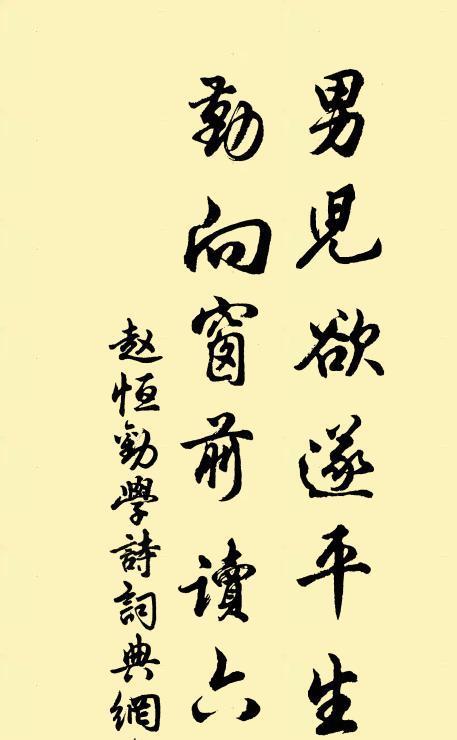 男兒欲遂平生
勤向窗前讀六
赵恒勸學詩詞典網